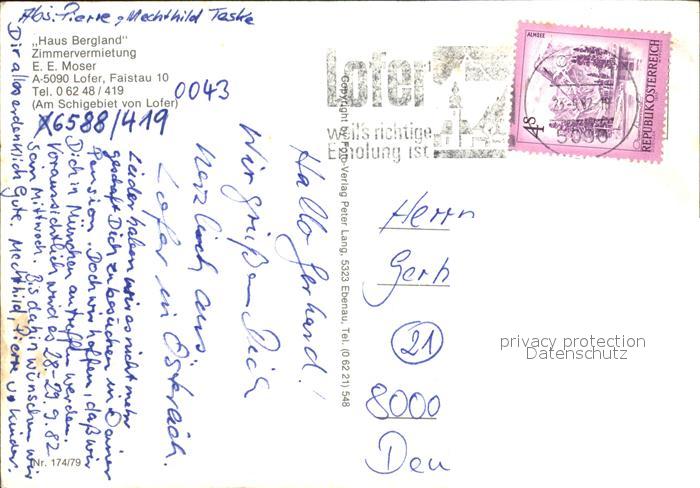 Abs: Pierre u Mechthild Taske
„Haus Bergland"
Zimmervermietung
E. E. Moser
A-5090 Lofer, Faistau 10
Tel. 0 62 48 / 419
(Am Schigebiet von Lofer)
0043
6588/419
Hallo Gerhard!
Wir grüßen Dich
herzlich aus
Lofer in Österreich.
Leider haben wir es nicht mehr
geschafft Dich zu besuchen in Deiner
Pension. Doch wir hoffen, daß wir
Dich in München antreffen werden.
Voraussichtlich wird es 28-29.9.82
sein Mittwoch. Bis dahin wünschen wir
Dir alles erdenklich Gute. Mechthild, Pierre u. Kinder.
Nr. 174/79
Copyright by Foto-Verlag Peter Lang, 5323 Ebenau, Tel. (0 62 21) 548
Lofer
weil's richtige
Erholung ist
ALMSEE
4S
REPUBLIK ÖSTERREICH
5090
Herrn
Gerh
21
8000
Deu
privacy protection
Datenschutz